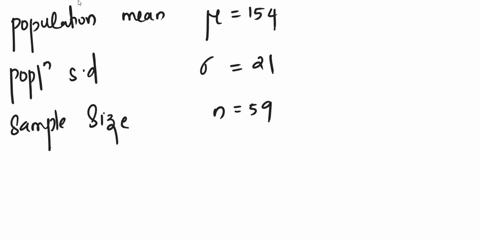 population mean μ = 154
popl^n s.d σ = 21
Sample Size n = 59